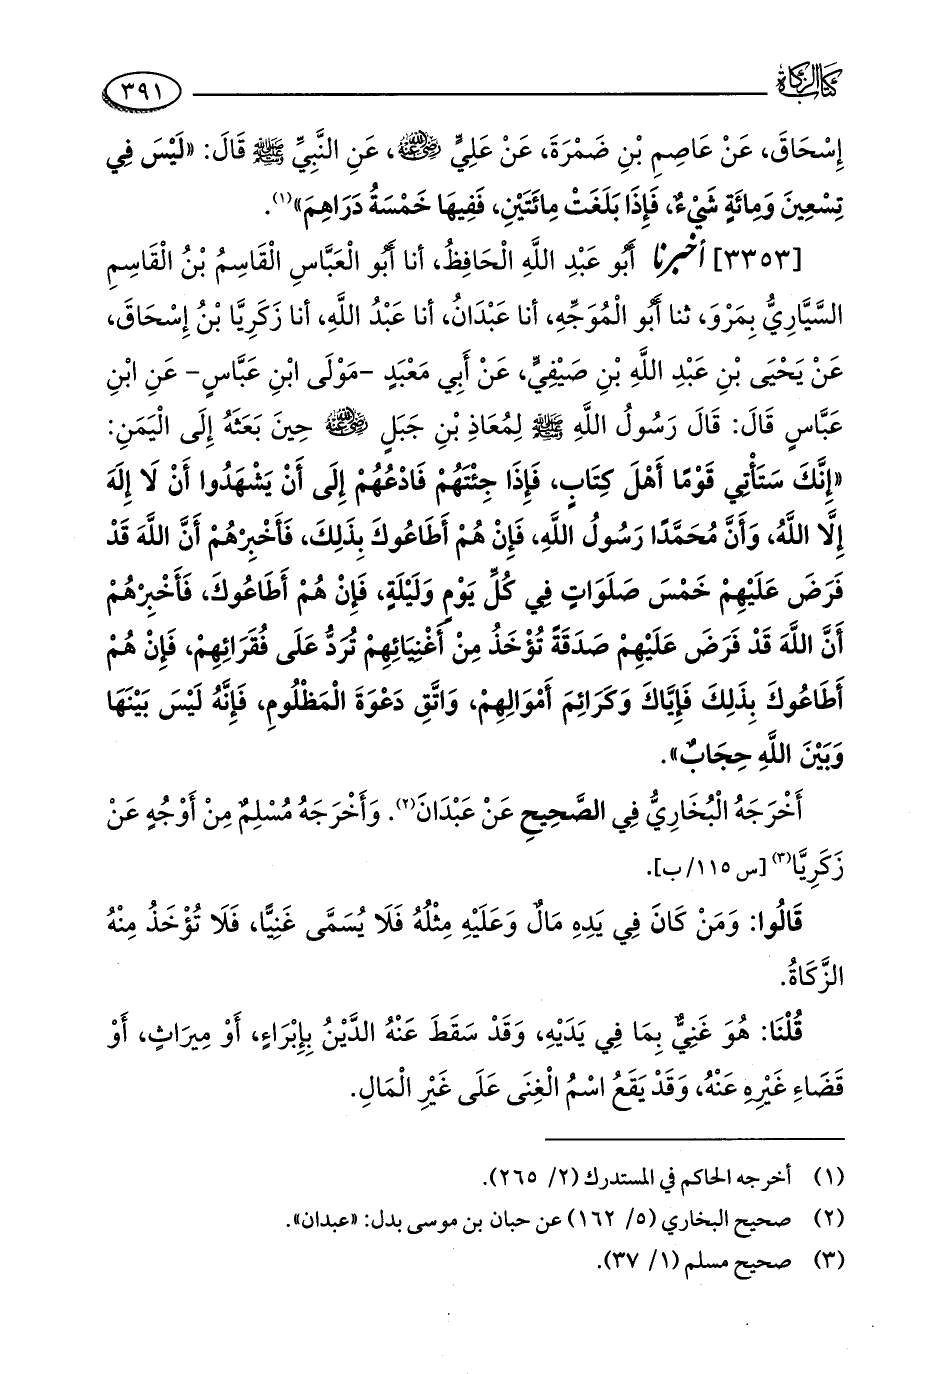 كتاب الزكاة
٣٩١
إِسْحَاقَ، عَنْ عَاصِمِ بْنِ ضَمْرَةَ، عَنْ عَلِيٍّ رَضِيَ اللَّهُ عَنْهُ، عَنِ النَّبِيِّ ﷺ قَالَ: «لَيْسَ فِي
تِسْعِينَ وَمِائَةٍ شَيْءٌ، فَإِذَا بَلَغَتْ مِائَتَيْنِ، فَفِيهَا خَمْسَةُ دَرَاهِمَ»(١).
[٣٣٥٣] أخبرنا أَبُو عَبْدِ اللَّهِ الْحَافِظُ، أنا أَبُو الْعَبَّاسِ الْقَاسِمُ بْنُ الْقَاسِمِ
السَّيَّارِيُّ بِمَرْوَ، ثنا أَبُو الْمُوَجِّهِ، أنا عَبْدَانُ، أنا عَبْدُ اللَّهِ، أنا زَكَرِيَّا بْنُ إِسْحَاقَ،
عَنْ يَحْيَى بْنِ عَبْدِ اللَّهِ بْنِ صَيْفِيٍّ، عَنْ أَبِي مَعْبَدٍ -مَوْلَى ابْنِ عَبَّاسٍ- عَنِ ابْنِ
عَبَّاسٍ قَالَ: قَالَ رَسُولُ اللَّهِ ﷺ لِمُعَاذِ بْنِ جَبَلٍ رَضِيَ اللَّهُ عَنْهُ حِينَ بَعَثَهُ إِلَى الْيَمَنِ:
«إِنَّكَ سَتَأْتِي قَوْمًا أَهْلَ كِتَابٍ، فَإِذَا جِئْتَهُمْ فَادْعُهُمْ إِلَى أَنْ يَشْهَدُوا أَنْ لَا إِلَهَ
إِلَّا اللَّهُ، وَأَنَّ مُحَمَّدًا رَسُولُ اللَّهِ، فَإِنْ هُمْ أَطَاعُوكَ بِذَلِكَ، فَأَخْبِرْهُمْ أَنَّ اللَّهَ قَدْ
فَرَضَ عَلَيْهِمْ خَمْسَ صَلَوَاتٍ فِي كُلِّ يَوْمٍ وَلَيْلَةٍ، فَإِنْ هُمْ أَطَاعُوكَ، فَأَخْبِرْهُمْ
أَنَّ اللَّهَ قَدْ فَرَضَ عَلَيْهِمْ صَدَقَةً تُؤْخَذُ مِنْ أَغْنِيَائِهِمْ تُرَدُّ عَلَى فُقَرَائِهِمْ، فَإِنْ هُمْ
أَطَاعُوكَ بِذَلِكَ فَإِيَّاكَ وَكَرَائِمَ أَمْوَالِهِمْ، وَاتَّقِ دَعْوَةَ الْمَظْلُومِ، فَإِنَّهُ لَيْسَ بَيْنَهَا
وَبَيْنَ اللَّهِ حِجَابٌ».
أَخْرَجَهُ الْبُخَارِيُّ فِي الصَّحِيحِ عَنْ عَبْدَانَ(٢). وَأَخْرَجَهُ مُسْلِمٌ مِنْ أَوْجُهٍ عَنْ
زَكَرِيَّا(٣) [س ١١٥/ب].
قَالُوا: وَمَنْ كَانَ فِي يَدِهِ مَالٌ وَعَلَيْهِ مِثْلُهُ فَلَا يُسَمَّى غَنِيًّا، فَلَا تُؤْخَذُ مِنْهُ
الزَّكَاةُ.
قُلْنَا: هُوَ غَنِيٌّ بِمَا فِي يَدَيْهِ، وَقَدْ سَقَطَ عَنْهُ الدَّيْنُ بِإِبْرَاءٍ، أَوْ مِيرَاثٍ، أَوْ
قَضَاءِ غَيْرِهِ عَنْهُ، وَقَدْ يَقَعُ اسْمُ الْغِنَى عَلَى غَيْرِ الْمَالِ.
(١) أخرجه الحاكم في المستدرك (٢/ ٢٦٥).
(٢) صحيح البخاري (٥/ ١٦٢) عن حبان بن موسى بدل: «عبدان».
(٣) صحيح مسلم (١/ ٣٧).